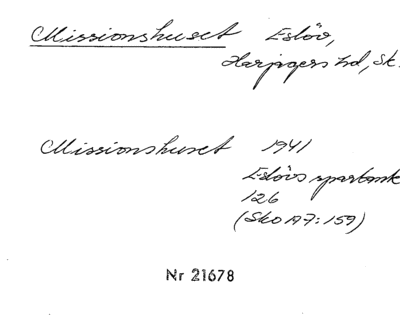 Missionshuset Eslöv,
Harjagers hd, Sk.
Missionshuset 1941
Eslövs sparbank
126
(Sko A 7:159)
Nr 21678